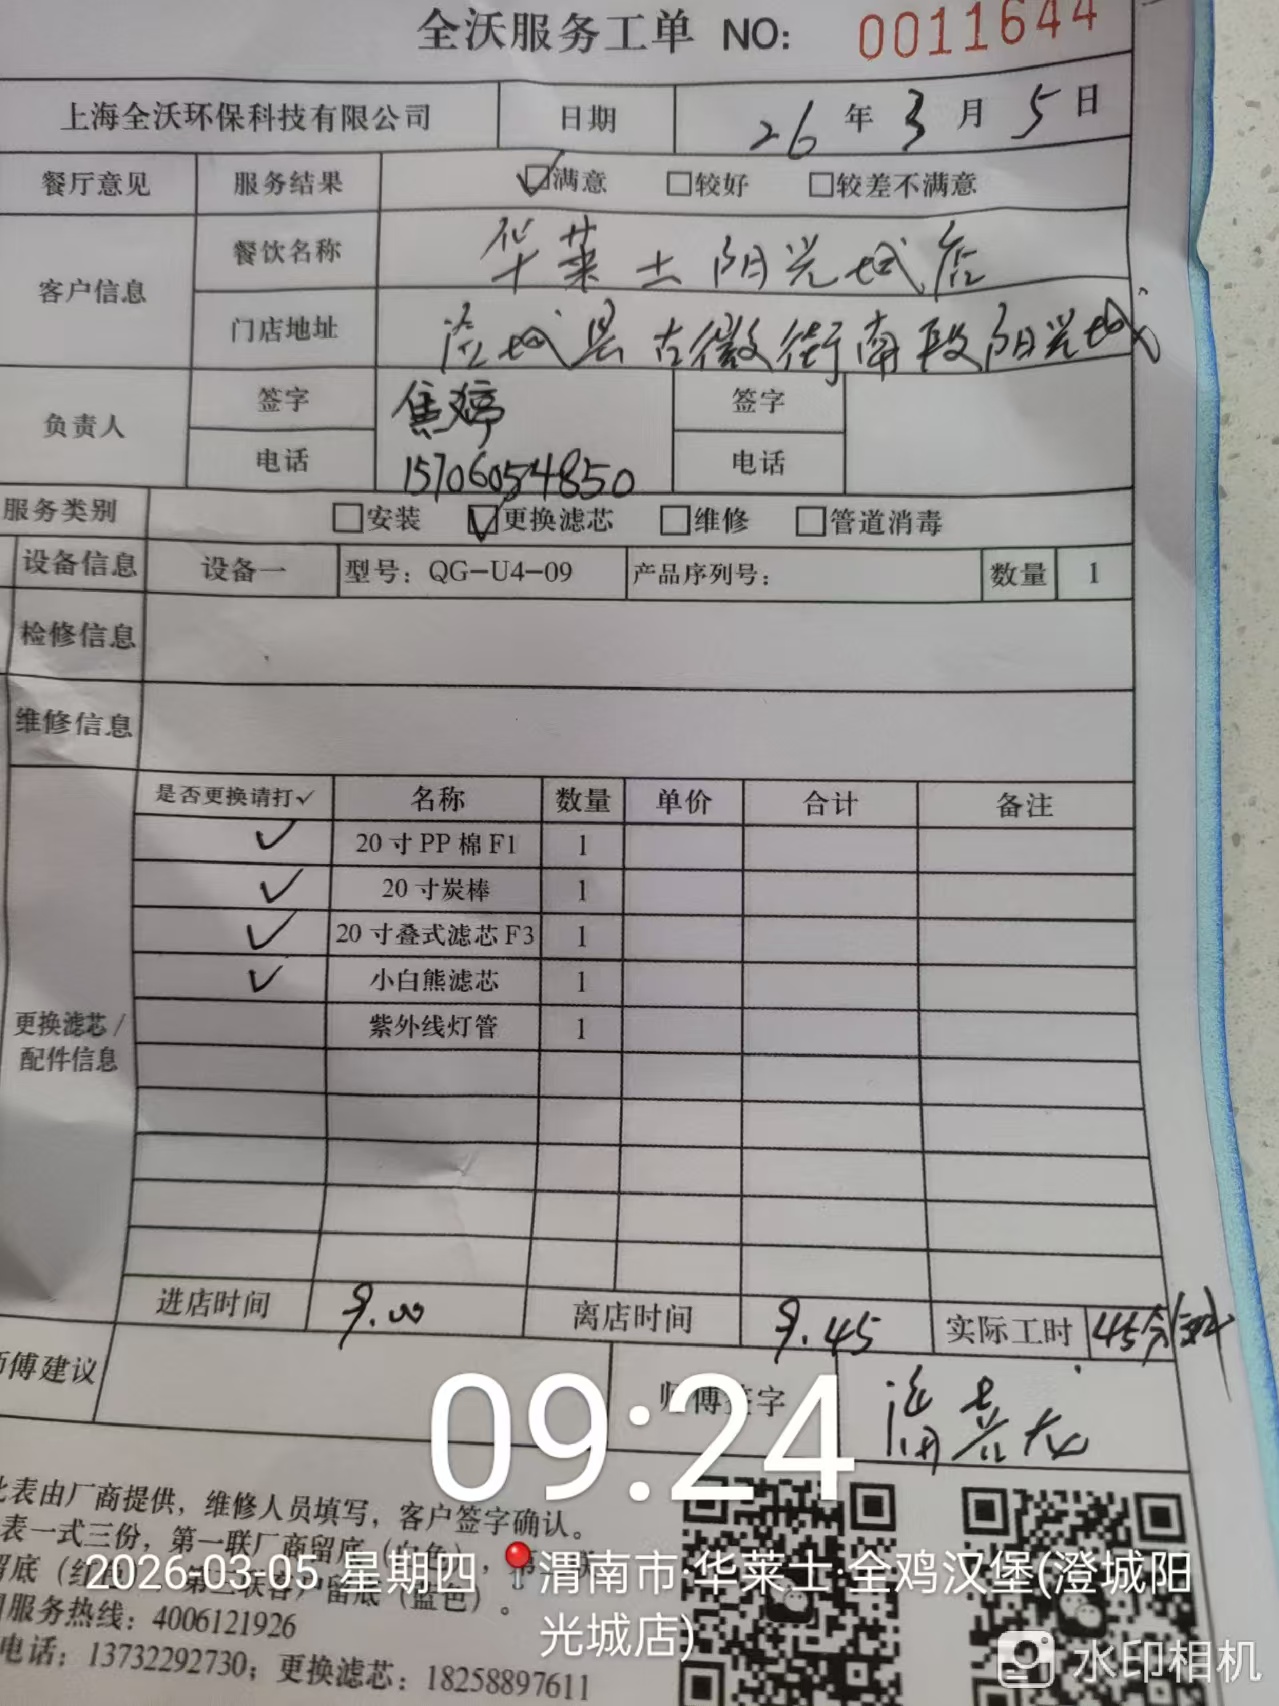 全沃服务工单 NO: 0011644
上海全沃环保科技有限公司 日期 26年3月5日
餐厅意见 服务结果 ☑满意 □较好 □较差不满意
客户信息 餐饮名称 华莱士阳光城店
门店地址 澄城县古徵街南段阳光城
负责人 签字 焦婷 签字
电话 15706054850 电话
服务类别 □安装 ☑更换滤芯 □维修 □管道消毒
设备信息 设备一 型号：QG-U4-09 产品序列号： 数量 1
检修信息
维修信息
是否更换请打✓ 名称 数量 单价 合计 备注
✓ 20寸PP棉F1 1
✓ 20寸炭棒 1
✓ 20寸叠式滤芯F3 1
✓ 小白熊滤芯 1
更换滤芯/配件信息
紫外线灯管 1
进店时间 9.00 离店时间 9.45 实际工时 45分钟
师傅建议 师傅签字
09:24
此表由厂商提供，维修人员填写，客户签字确认。
表一式三份，第一联厂商留底（白色），第二联
留底（红色），第三联客户留底（蓝色）。
服务热线：4006121926
电话：13732292730；更换滤芯：18258897611
2026-03-05 星期四 渭南市·华莱士·全鸡汉堡(澄城阳
光城店)
水印相机